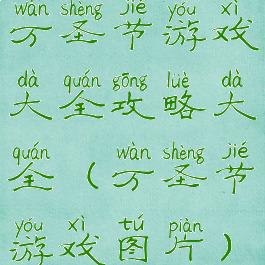 wàn shèng jié yóu xì
万圣节游戏
dà quán gōng lüè dà
大全攻略大
quán wàn shèng jié
全（万圣节
yóu xì tú piàn
游戏图片）